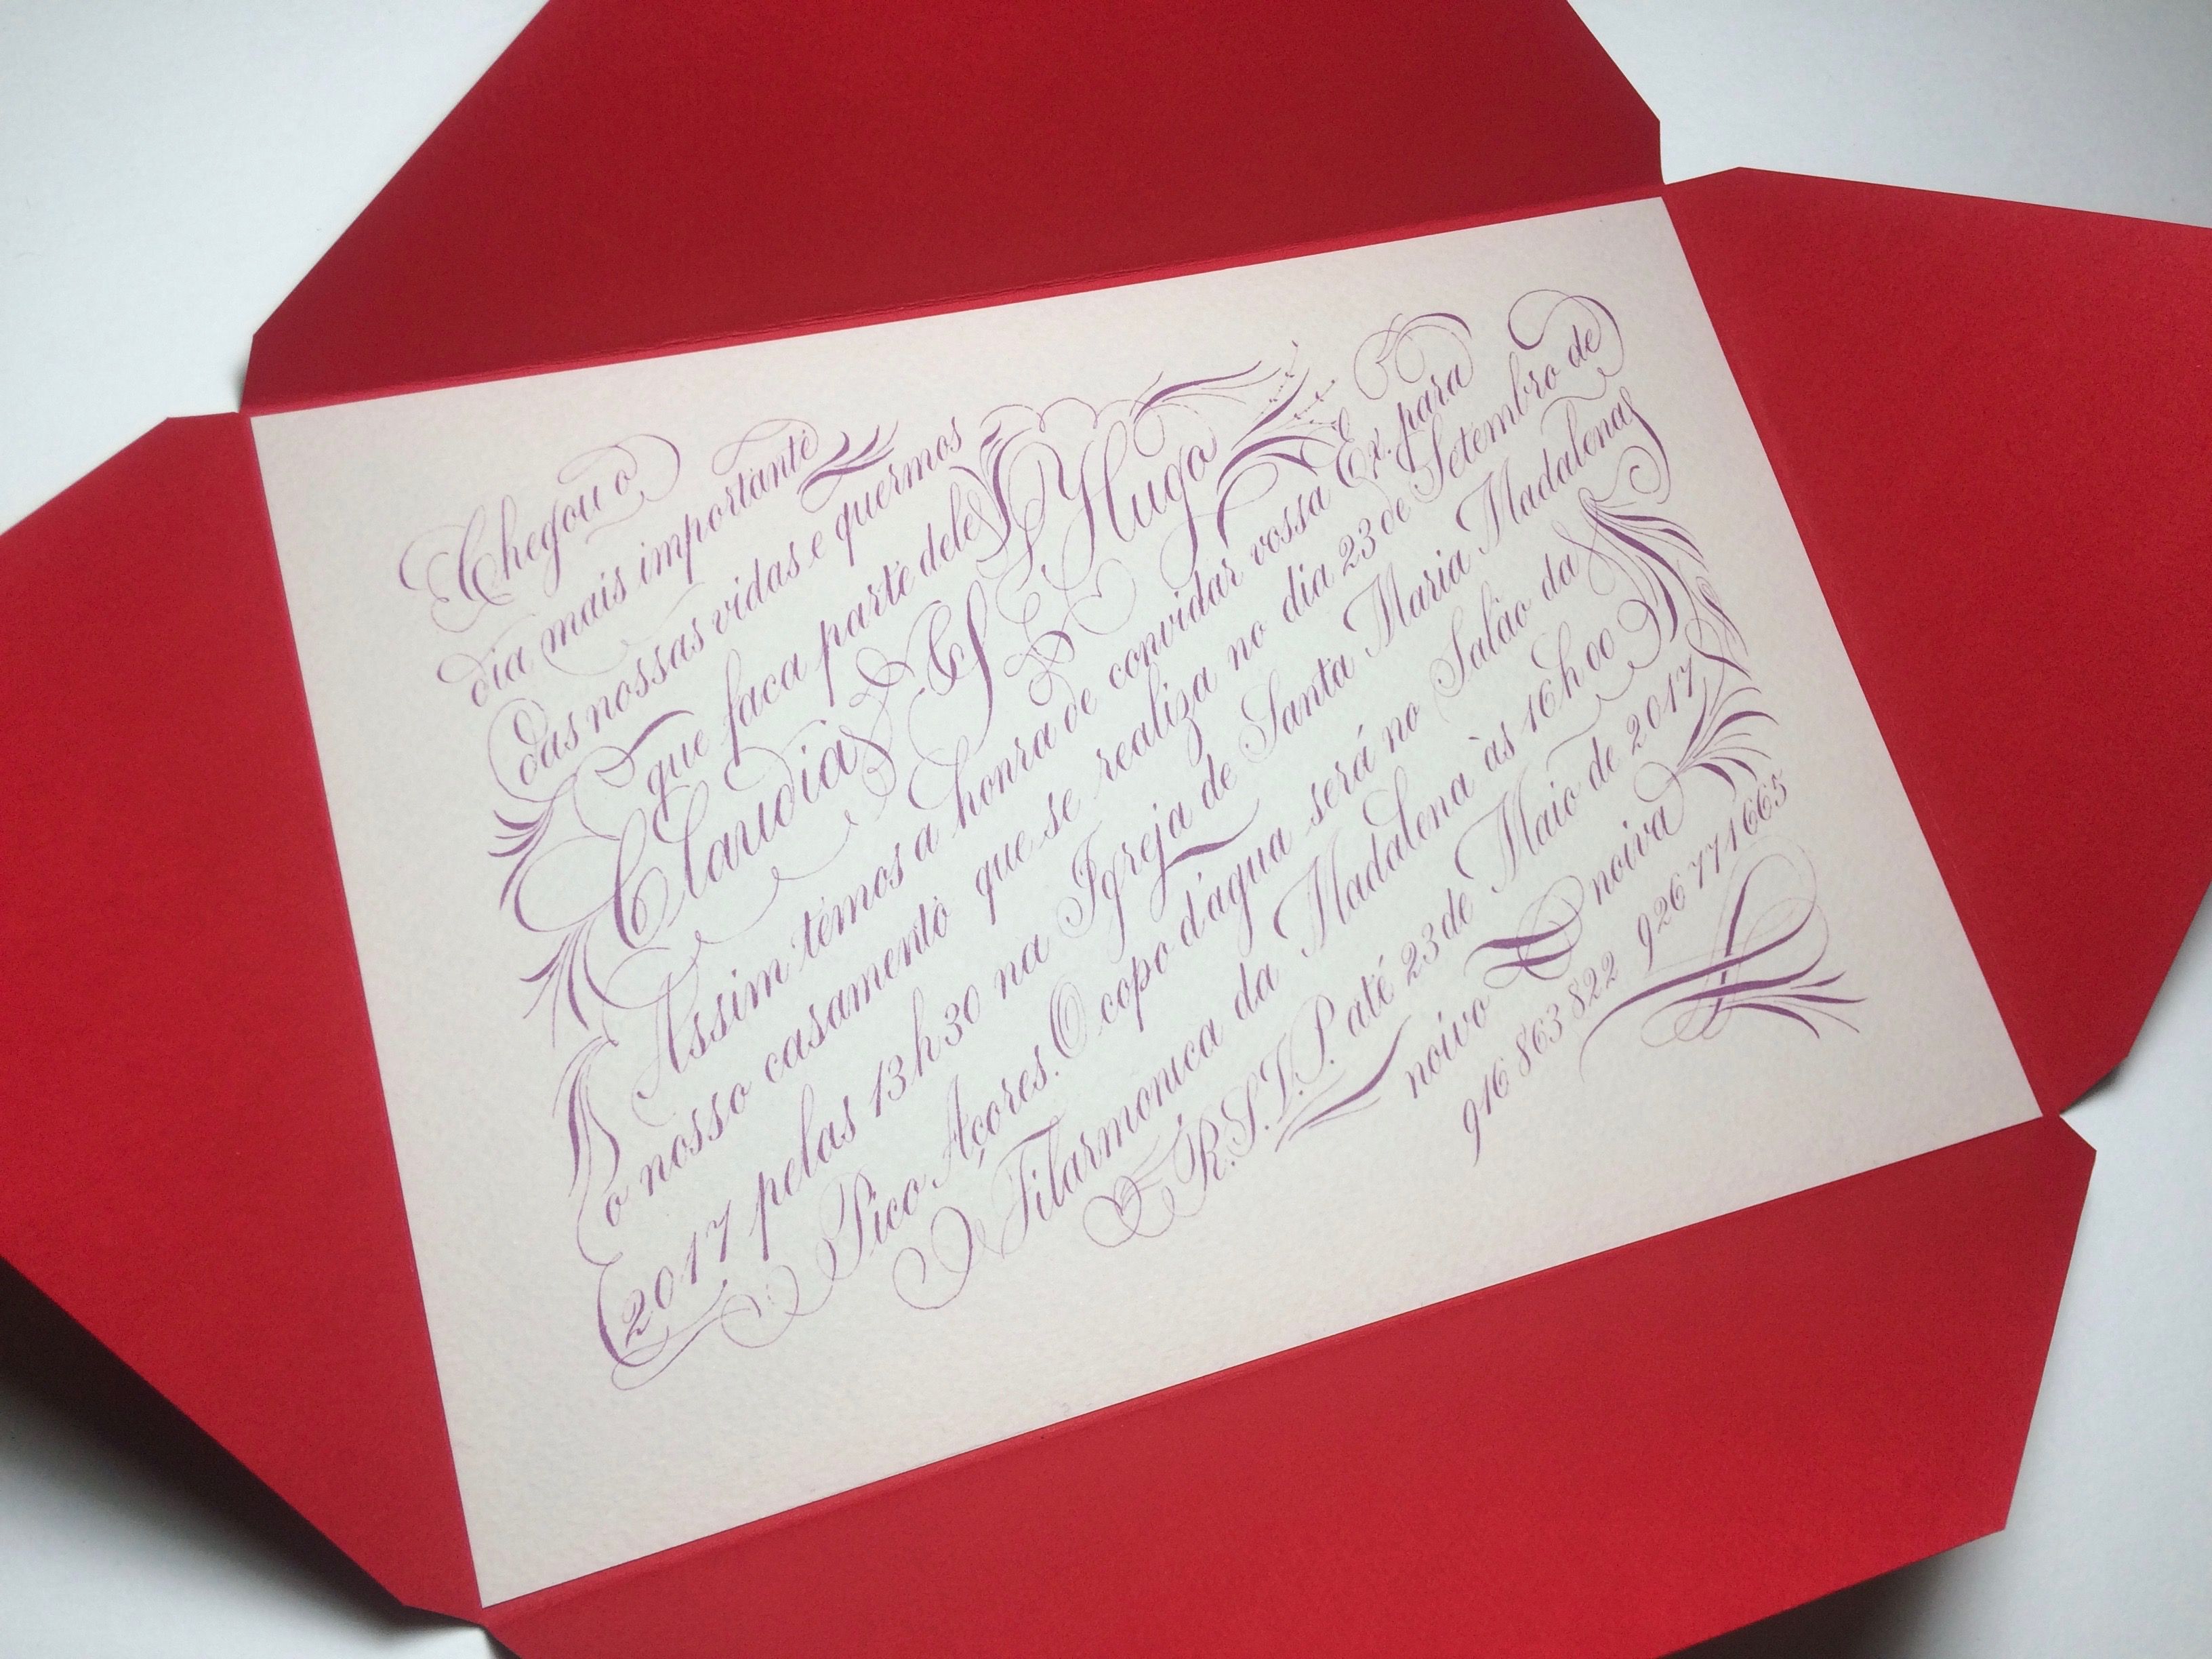 Chegou o
dia mais importante
das nossas vidas e quermos
que faca parte dele
Claudia & Hugo
Assim temos a honra de convidar vossa Ex. para
o nosso casamento que se realiza no dia 23 de Setembro de
2017 pelas 13h30 na Igreja de Santa Maria Madalena
Pico Açores. O copo d'água será no Salão da
Filarmonica da Madalena às 16h00
R.S.V.P. até 23 de Maio de 2017
noivo noiva
916 863 822 926 771 665